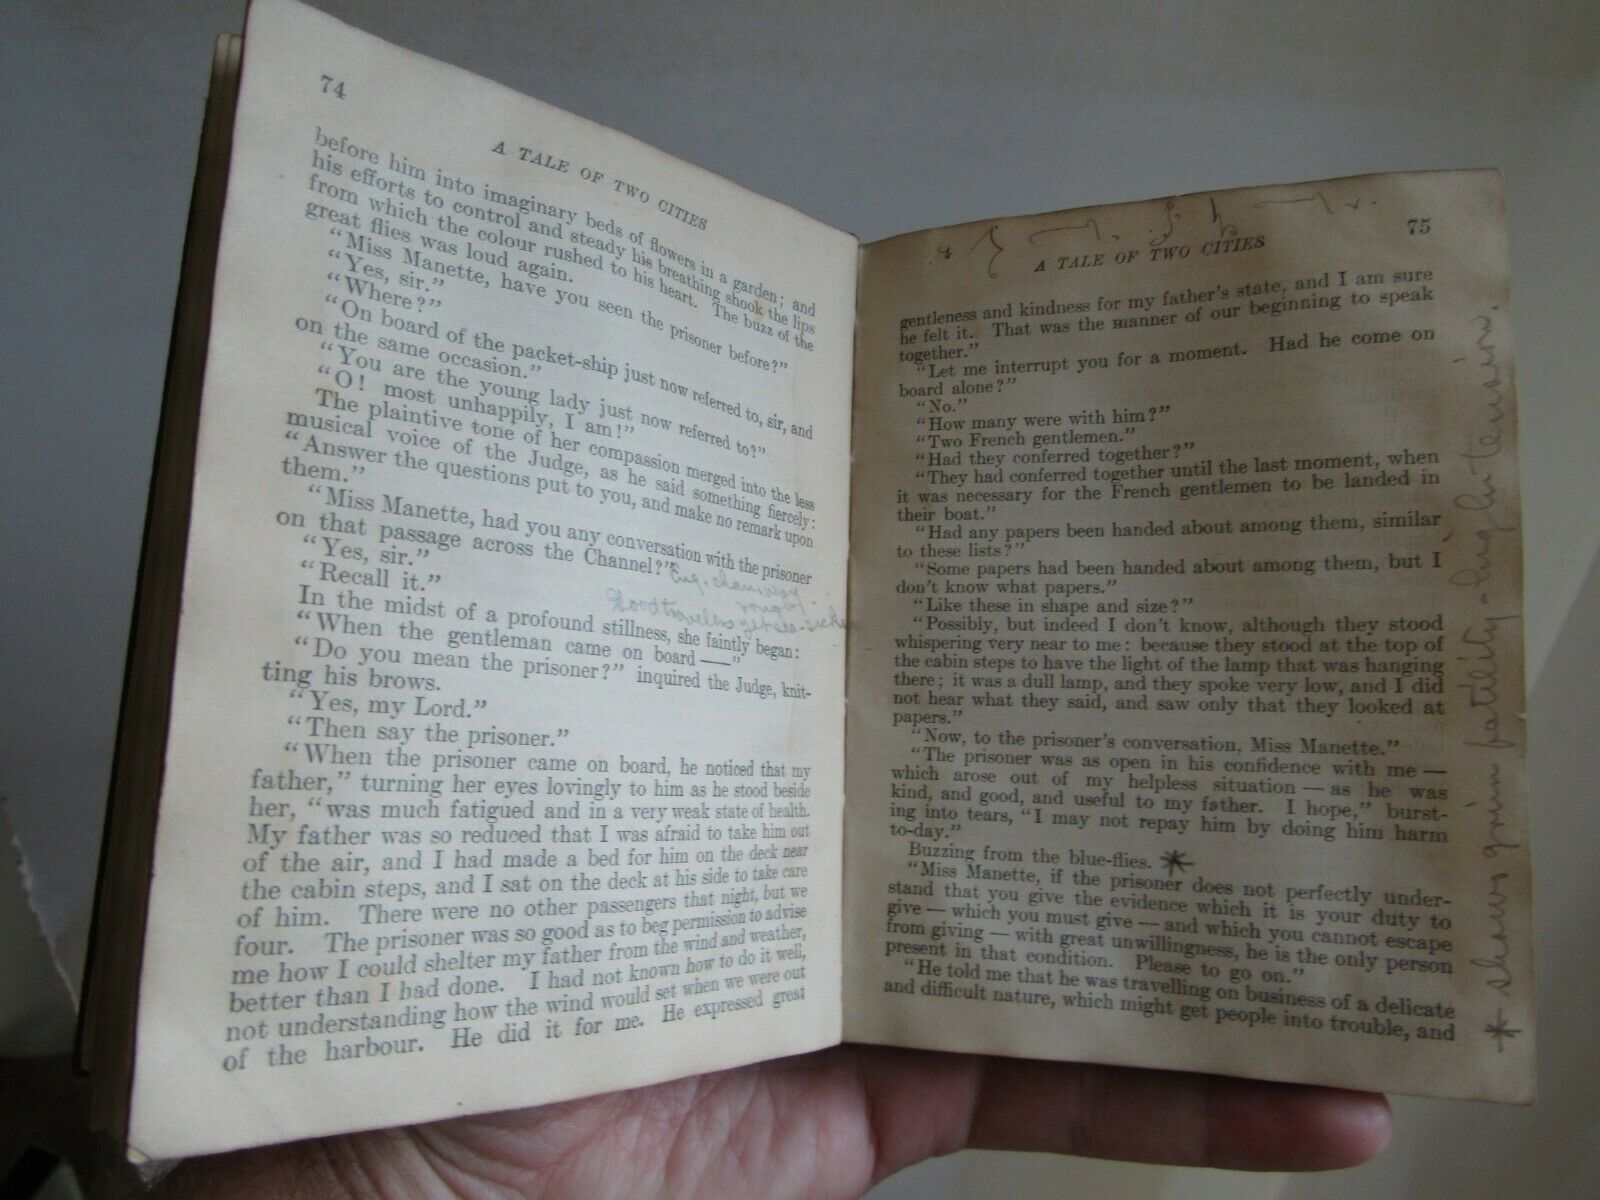 74
A TALE OF TWO CITIES
before him into imaginary beds of flowers in a garden; and
his efforts to control and steady his breathing shook the lips
from which the colour rushed to his heart. The buzz of the
great flies was loud again.
"Miss Manette, have you seen the prisoner before?"
"Yes, sir."
"Where?"
"On board of the packet-ship just now referred to, sir, and
on the same occasion."
"You are the young lady just now referred to?"
"O! most unhappily, I am!"
The plaintive tone of her compassion merged into the less
musical voice of the Judge, as he said something fiercely:
"Answer the questions put to you, and make no remark upon
them."
"Miss Manette, had you any conversation with the prisoner
on that passage across the Channel?"
"Yes, sir."
Eng. channel
rough
"Recall it."
Good travelers get sea-sick
In the midst of a profound stillness, she faintly began:
"When the gentleman came on board——"
"Do you mean the prisoner?" inquired the Judge, knit-
ting his brows.
"Yes, my Lord."
"Then say the prisoner."
"When the prisoner came on board, he noticed that my
father," turning her eyes lovingly to him as he stood beside
her, "was much fatigued and in a very weak state of health.
My father was so reduced that I was afraid to take him out
of the air, and I had made a bed for him on the deck near
the cabin steps, and I sat on the deck at his side to take care
of him. There were no other passengers that night, but we
four. The prisoner was so good as to beg permission to advise
me how I could shelter my father from the wind and weather,
better than I had done. I had not known how to do it well,
not understanding how the wind would set when we were out
of the harbour. He did it for me. He expressed great
75
A TALE OF TWO CITIES
gentleness and kindness for my father's state, and I am sure
he felt it. That was the manner of our beginning to speak
together."
"Let me interrupt you for a moment. Had he come on
board alone?"
"No."
"How many were with him?"
"Two French gentlemen."
"Had they conferred together?"
"They had conferred together until the last moment, when
it was necessary for the French gentlemen to be landed in
their boat."
"Had any papers been handed about among them, similar
to these lists?"
"Some papers had been handed about among them, but I
don't know what papers."
"Like these in shape and size?"
"Possibly, but indeed I don't know, although they stood
whispering very near to me: because they stood at the top of
the cabin steps to have the light of the lamp that was hanging
there; it was a dull lamp, and they spoke very low, and I did
not hear what they said, and saw only that they looked at
papers."
"Now, to the prisoner's conversation, Miss Manette."
"The prisoner was as open in his confidence with me —
which arose out of my helpless situation — as he was
kind, and good, and useful to my father. I hope," burst-
ing into tears, "I may not repay him by doing him harm
to-day."
Buzzing from the blue-flies. *
"Miss Manette, if the prisoner does not perfectly under-
stand that you give the evidence which it is your duty to
give — which you must give — and which you cannot escape
from giving — with great unwillingness, he is the only person
present in that condition. Please to go on."
"He told me that he was travelling on business of a delicate
and difficult nature, which might get people into trouble, and
* shows grim fatility - heightens